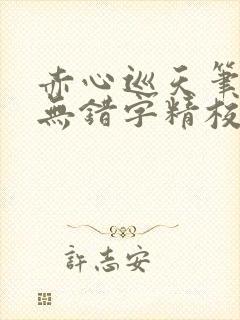 赤心巡天筆
無錯字精校
許志安